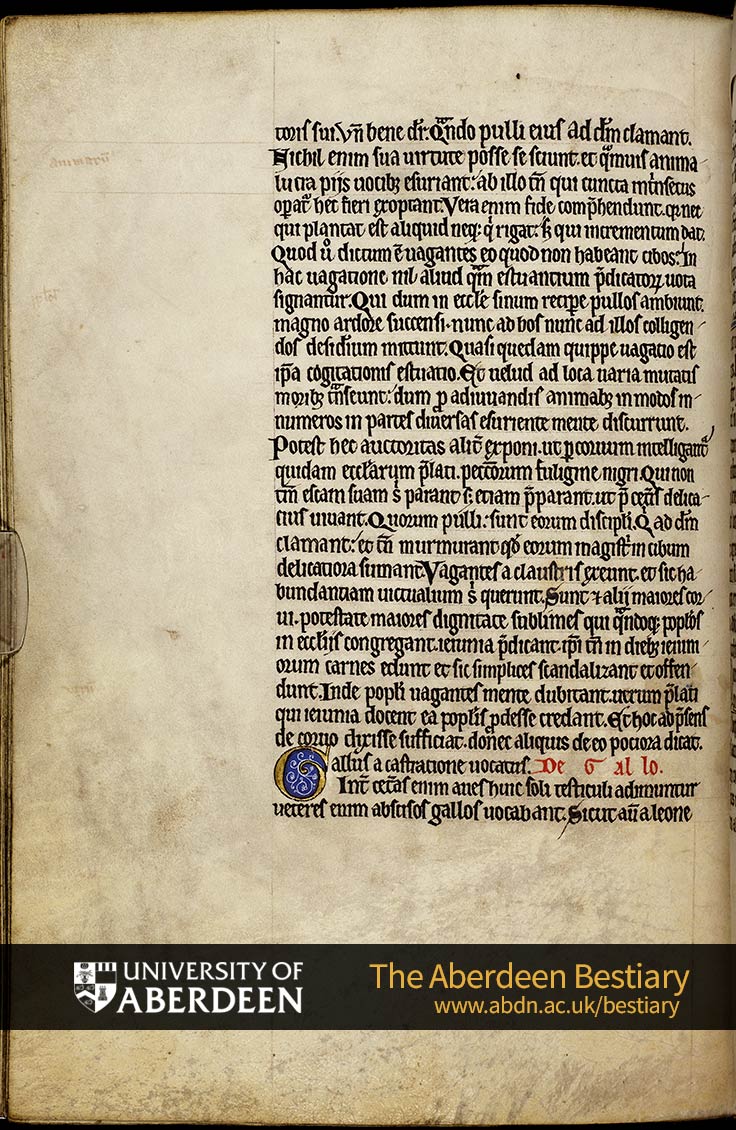 animarum
toris sui. Vn̄ bene dr̄. Qn̄do pulli eius ad dm̄ clamant.
Nichil enim sua uirtute posse se sciunt. et qͣmuis anima
lucra pijs uocibꝫ esuriant: ab illo tn̄ qui cuncta int̄nsecus
opat̄ hec fieri exoptant. Vera enim fide comp̄hendunt. qꝛ nec
qui plantat est aliquid neqꝫ qͥ rigat: sꝫ qui incrementum dat.
Quod u̾ dictum ē uagantes eo quod non habeant cibos: In
hac uagatione nil aliud qͣm estuantium p̄dicatoꝝ uota
signantur. Qui dum in ecclē sinum recipe pullos ambiunt.
magno ardore succensi. nunc ad hos nunc ad illos colligen
dos desidium mittunt. Quasi quedam quippe uagatio est
ip̄a cogitationis estuatio. Et uelud ad loca uaria mutatis
moribꝫ tn̄seunt: dum p adiuuandis animabꝫ in modos in
numeros in partes diuersas esuriente mente discurrunt.
Potest hec auctoritas alit̄ exponi. ut p coruum intelligant̄
quidam eccl̄arum p̄lati. peccorum fuligine nigri. Qui non
tm̄ escam suam s̄ parant sꝫ etiam p̄parant. ut p̄ cet̄is delica
cius uiuant. Quorum pulli: sunt eorum discipl̄i. Qͥ ad dm̄
clamant: et tn̄ murmurant qd̄ eorum magist̄ in cibum
delicatiora sumant. Vagantes a claustris exeunt. et sic ha
bundantiam uictualium s̄ querunt. Sunt ⁊ alij maiores cor
ui. potestate maiores dignitate sublimes qui qn̄doqꝫ popl̄os
in eccl̄ijs congregant. ieiunia p̄dicant. ip̄i tn̄ in diebꝫ ieiuni
orum carnes edunt et sic simplices scandalizant et offen
dunt. Inde popl̄i uagantes mente dubitant. utrum p̄lati
qui ieiunia docent ea popl̄is pdesse credant. Et hoc ad p̄sens
de coruo dixisse sufficiat. donec aliquis de eo pociora dicat.
Gallus a castratione uocatus. De Gallo.
Int̄ cet̄as enim aues huic soli testiculi adimuntur
ueteres enim abscisos gallos uocabant. Sicut aut̄ a leone
UNIVERSITY OF
ABERDEEN
The Aberdeen Bestiary
www.abdn.ac.uk/bestiary